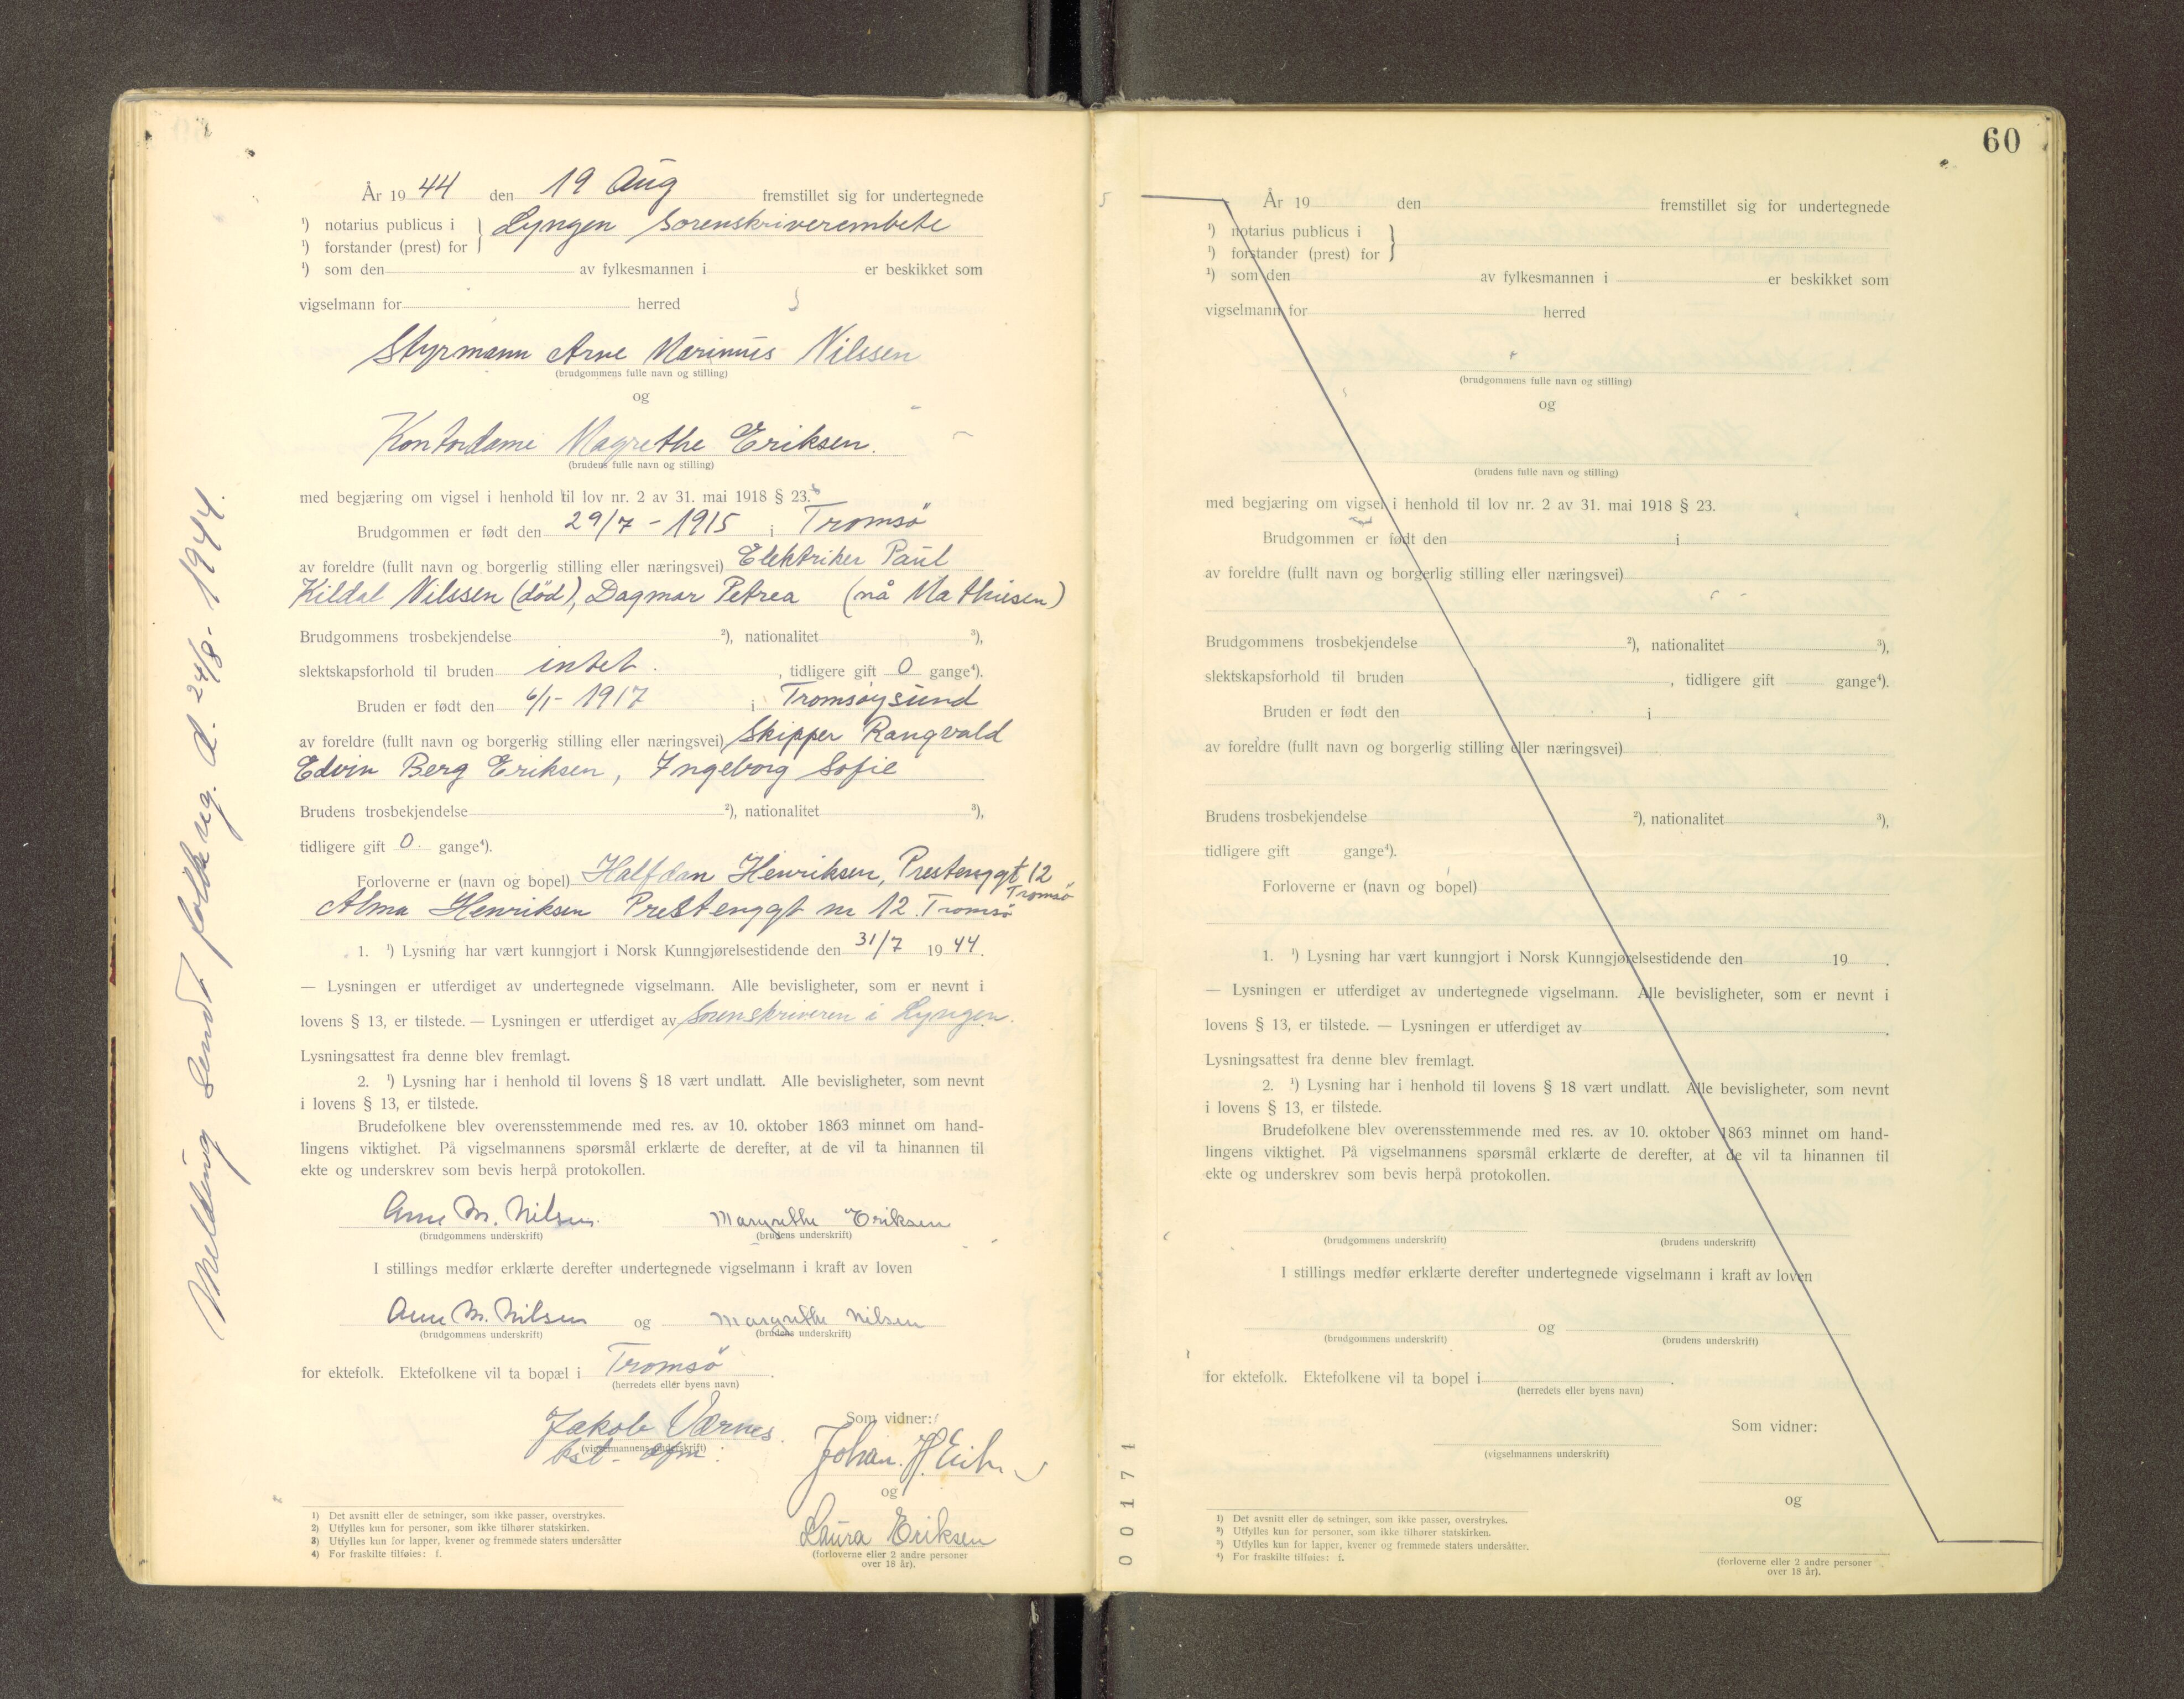 År 19 44 den 19 Aug fremstillet sig for undertegnede
¹) notarius publicus i } Lyngen Sorenskriverembete
¹) forstander (prest) for
¹) som den av fylkesmannen i er beskikket som
vigselmann for herred
Styrmann Arne Marinus Nilssen
(brudgommens fulle navn og stilling)
og
Kontordame Magrethe Eriksen.
(brudens fulle navn og stilling)
med begjæring om vigsel i henhold til lov nr. 2 av 31. mai 1918 § 23.
Brudgommen er født den 29/7 - 1915 i Tromsö
av foreldre (fullt navn og borgerlig stilling eller næringsvei) Elektriker Paul
Kildal Nilssen (död), Dagmar Petrea (nå Mathiesen)
Brudgommens trosbekjendelse ²), nationalitet ³),
slektskapsforhold til bruden intet. , tidligere gift 0 gange⁴).
Bruden er født den 6/1 - 1917 i Tromsøysund
av foreldre (fullt navn og borgerlig stilling eller næringsvei) Skipper Rangvald
Edvin Berg Eriksen, Ingeborg Sofie
Brudens trosbekjendelse ²), nationalitet ³),
tidligere gift 0. gange⁴).
Forloverne er (navn og bopel) Halfdan Henriksen, Prestenggt 12
Tromsö
Alma Henriksen Prestenggt nr 12. Tromsö
1. ¹) Lysning har vært kunngjort i Norsk Kunngjørelsestidende den 31/7 19 44.
— Lysningen er utferdiget av undertegnede vigselmann. Alle bevisligheter, som er nevnt i
lovens § 13, er tilstede. — Lysningen er utferdiget av Sorenskriveren i Lyngen.
Lysningsattest fra denne blev fremlagt.
2. ¹) Lysning har i henhold til lovens § 18 vært undlatt. Alle bevisligheter, som nevnt
i lovens § 13, er tilstede.
Brudefolkene blev overensstemmende med res. av 10. oktober 1863 minnet om hand-
lingens viktighet. På vigselmannens spørsmål erklærte de derefter, at de vil ta hinannen til
ekte og underskrev som bevis herpå protokollen.
Arne M. Nilsen. Margrethe Eriksen
(brudgommens underskrift) (brudens underskrift)
I stillings medfør erklærte derefter undertegnede vigselmann i kraft av loven
Arne M. Nilsen og Margrethe Nilsen
(brudgommens underskrift) (brudens underskrift)
for ektefolk. Ektefolkene vil ta bopæl i Tromsö.
(herredets eller byens navn)
Jakob Værnes.
(vigselmannens underskrift)
Som vidner:
Johan. H.
og
Laura Eriksen
(forloverne eller 2 andre personer
over 18 år).
1) Det avsnitt eller de setninger, som ikke passer, overstrykes.
2) Utfylles kun for personer, som ikke tilhører statskirken.
3) Utfylles kun for lapper, kvener og fremmede staters undersåtter
4) For fraskilte tilføies: f.
Melding sendt folkereg. d. 24/8 - 1944.
60
År 19 den fremstillet sig for undertegnede
¹) notarius publicus i }
¹) forstander (prest) for
¹) som den av fylkesmannen i er beskikket som
vigselmann for herred
(brudgommens fulle navn og stilling)
og
(brudens fulle navn og stilling)
med begjæring om vigsel i henhold til lov nr. 2 av 31. mai 1918 § 23.
Brudgommen er født den i
av foreldre (fullt navn og borgerlig stilling eller næringsvei)
Brudgommens trosbekjendelse ²), nationalitet ³),
slektskapsforhold til bruden , tidligere gift gange⁴).
Bruden er født den i
av foreldre (fullt navn og borgerlig stilling eller næringsvei)
Brudens trosbekjendelse ²), nationalitet ³),
tidligere gift gange⁴).
Forloverne er (navn og bopel)
1. ¹) Lysning har vært kunngjort i Norsk Kunngjørelsestidende den 19 .
— Lysningen er utferdiget av undertegnede vigselmann. Alle bevisligheter, som er nevnt i
lovens § 13, er tilstede. — Lysningen er utferdiget av .
Lysningsattest fra denne blev fremlagt.
2. ¹) Lysning har i henhold til lovens § 18 vært undlatt. Alle bevisligheter, som nevnt
i lovens § 13, er tilstede.
Brudefolkene blev overensstemmende med res. av 10. oktober 1863 minnet om hand-
lingens viktighet. På vigselmannens spørsmål erklærte de derefter, at de vil ta hinannen til
ekte og underskrev som bevis herpå protokollen.
(brudgommens underskrift) (brudens underskrift)
I stillings medfør erklærte derefter undertegnede vigselmann i kraft av loven
og
(brudgommens underskrift) (brudens underskrift)
for ektefolk. Ektefolkene vil ta bopel i .
(herredets eller byens navn)
Som vidner:
(vigselmannens underskrift)
og
(forloverne eller 2 andre personer
over 18 år).
1) Det avsnitt eller de setninger, som ikke passer, overstrykes.
²) Utfylles kun for personer, som ikke tilhører statskirken.
³) Utfylles kun for lapper, kvener og fremmede staters undersåtter.
⁴) For fraskilte tilføies: f.
00171